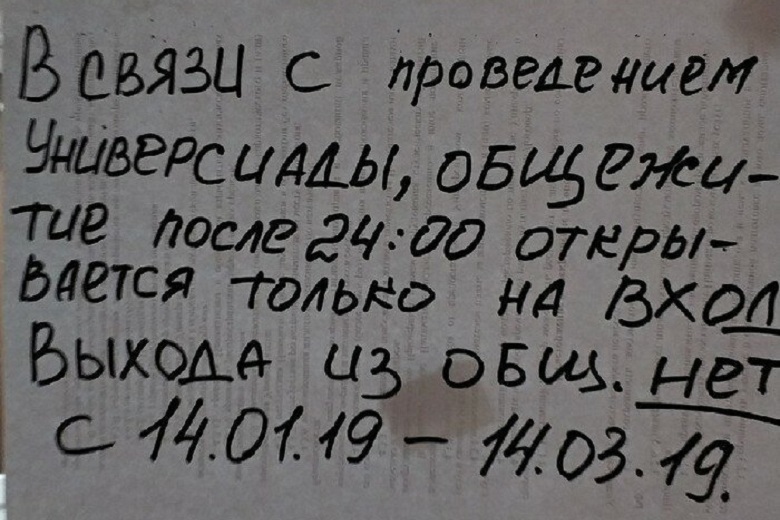 В СВЯЗИ С проведением
УНИВЕРСИАДЫ, ОБЩЕЖИ-
ТИЕ после 24:00 ОТКРЫ-
ВАЕТСЯ ТОЛЬКО НА ВХОД
ВЫХОДА ИЗ ОБЩ. НЕТ
С 14.01.19 – 14.03.19.